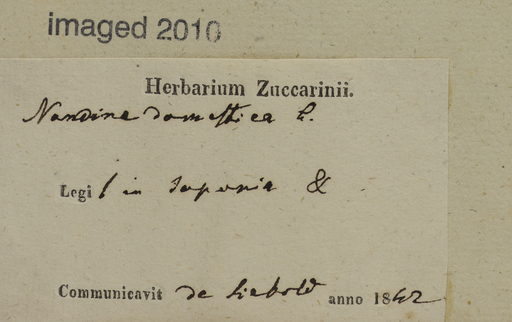 imaged 2010
Herbarium Zuccarinii.
Nandina domestica
Legi in Japonia &
Communicavit de Siebold anno 1842